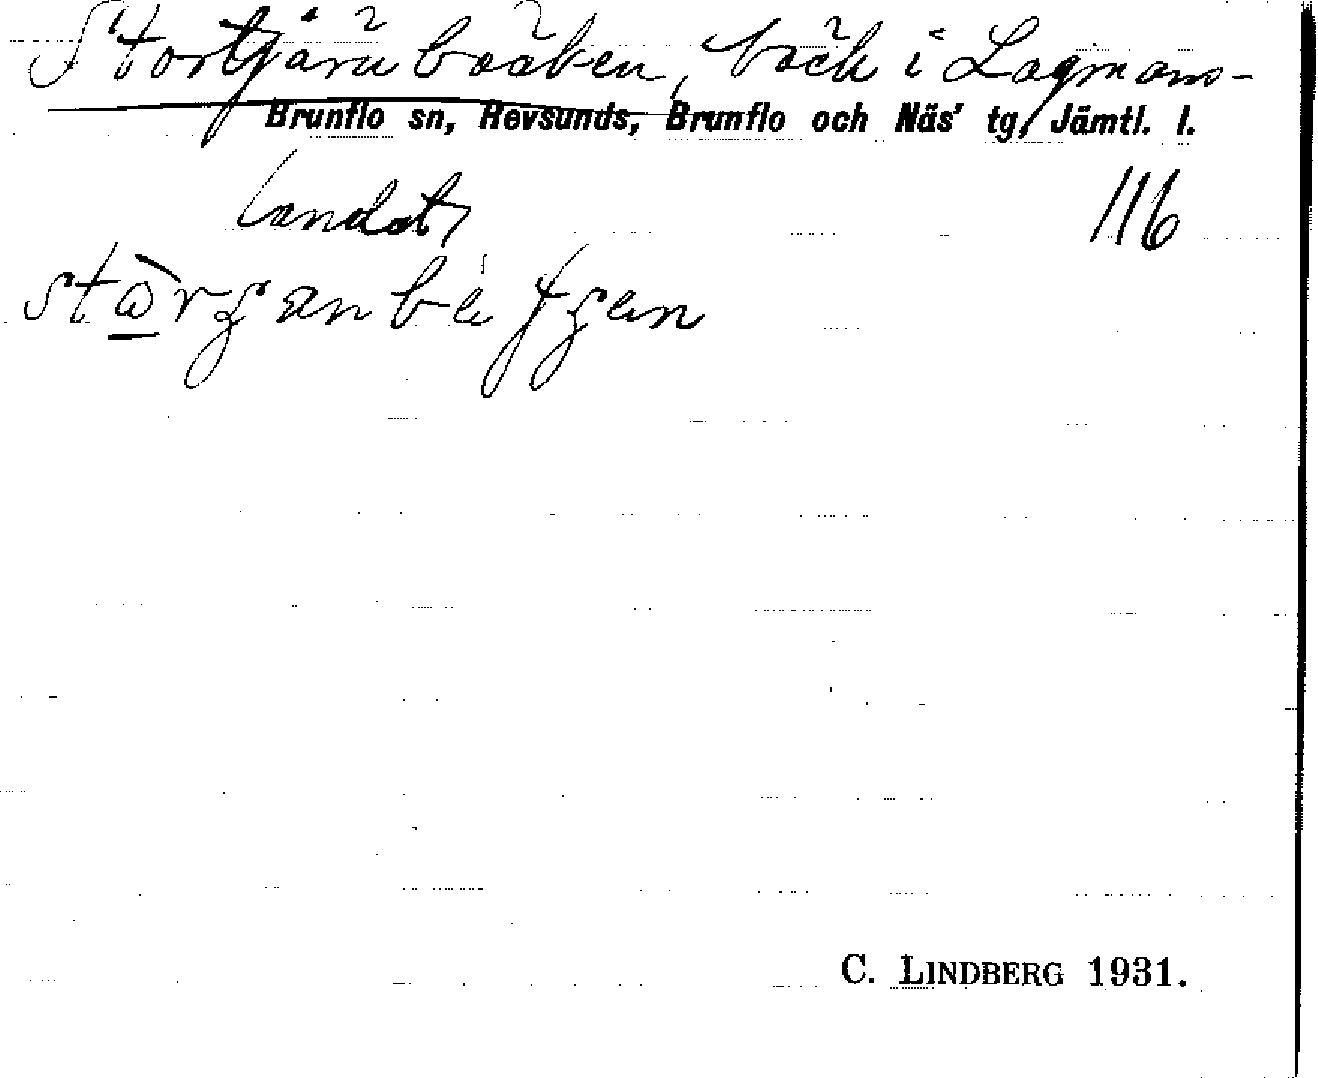 Stortjärnbäcken, bäck i Lagmans-
Brunflo sn, Revsunds, Brunflo och Näs' tg, Jämtl. l.
landet, 116
C. LINDBERG 1931.